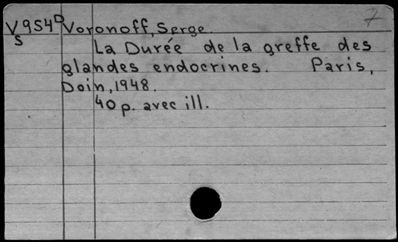 7
V954D Voronoff, Serge.
S
La Durée de la greffe des
glandes endocrines. Paris,
Doin, 1948.
40 p. avec ill.